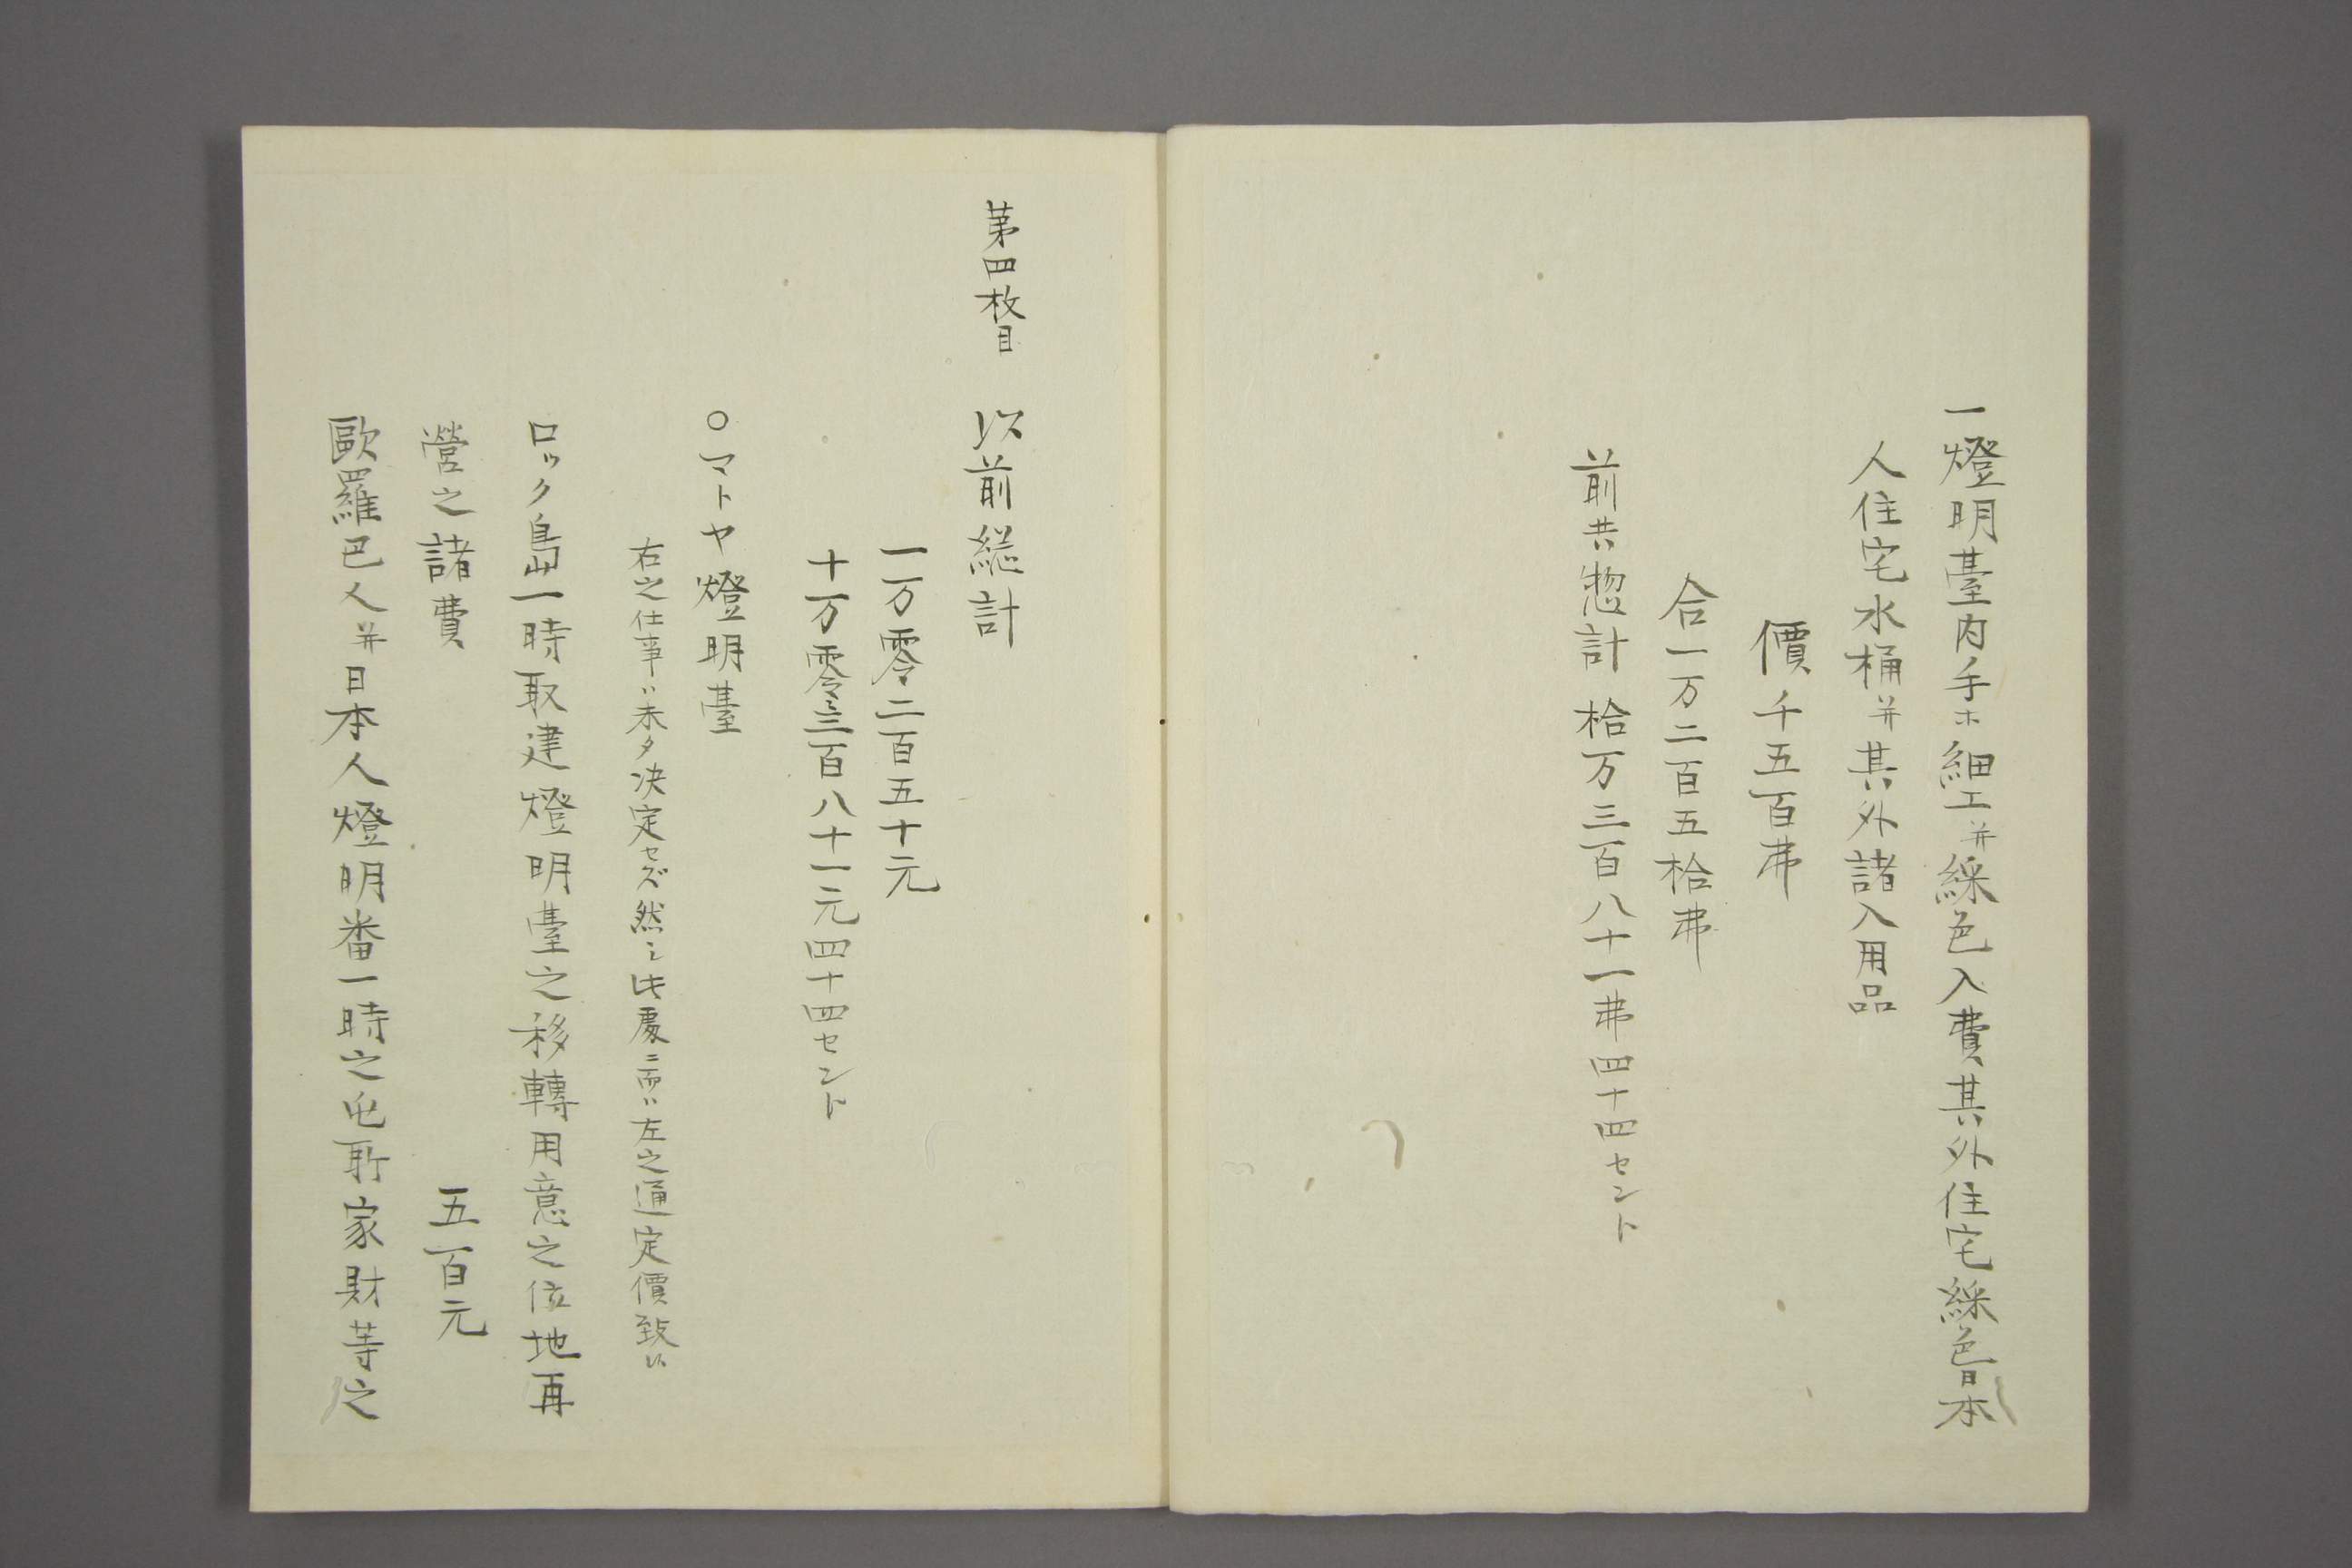 一燈明臺内手ホ細工并綵色入費其外住宅綵色日本
人住宅水桶并其外諸入用品
價千五百弗
合一万二百五拾弗
前共惣計 拾万三百八十一弗四十四セント
第四枚目 以前総計
一万零二百五十元
十万零三百八十一元四十四セント
○マトヤ燈明臺
右之仕事ハ未タ决定セズ然シ此處ニ而ハ左之通定價致ス
ロック島一時取建燈明臺之移轉用意之位地再
營之諸費 五百元
歐羅巴人并日本人燈明番一時之屯所家財等之